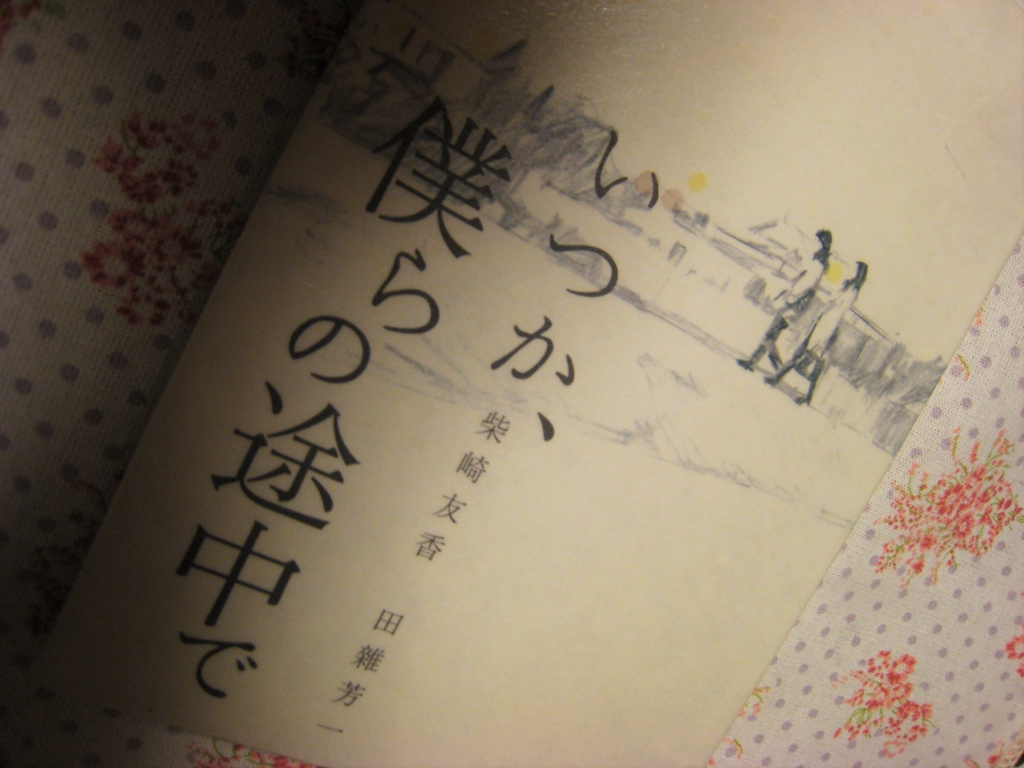 いつか、
僕らの途中で
柴崎友香
田雜芳一